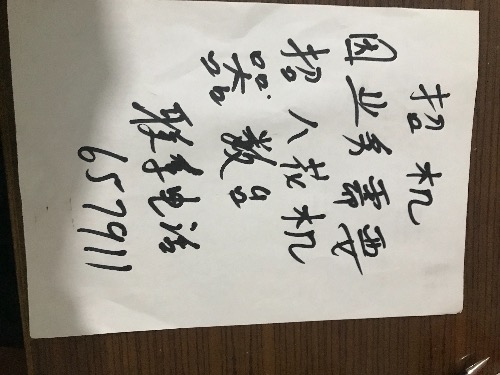 招机
因业务需要
招八花机
器数名
联系电话
657911